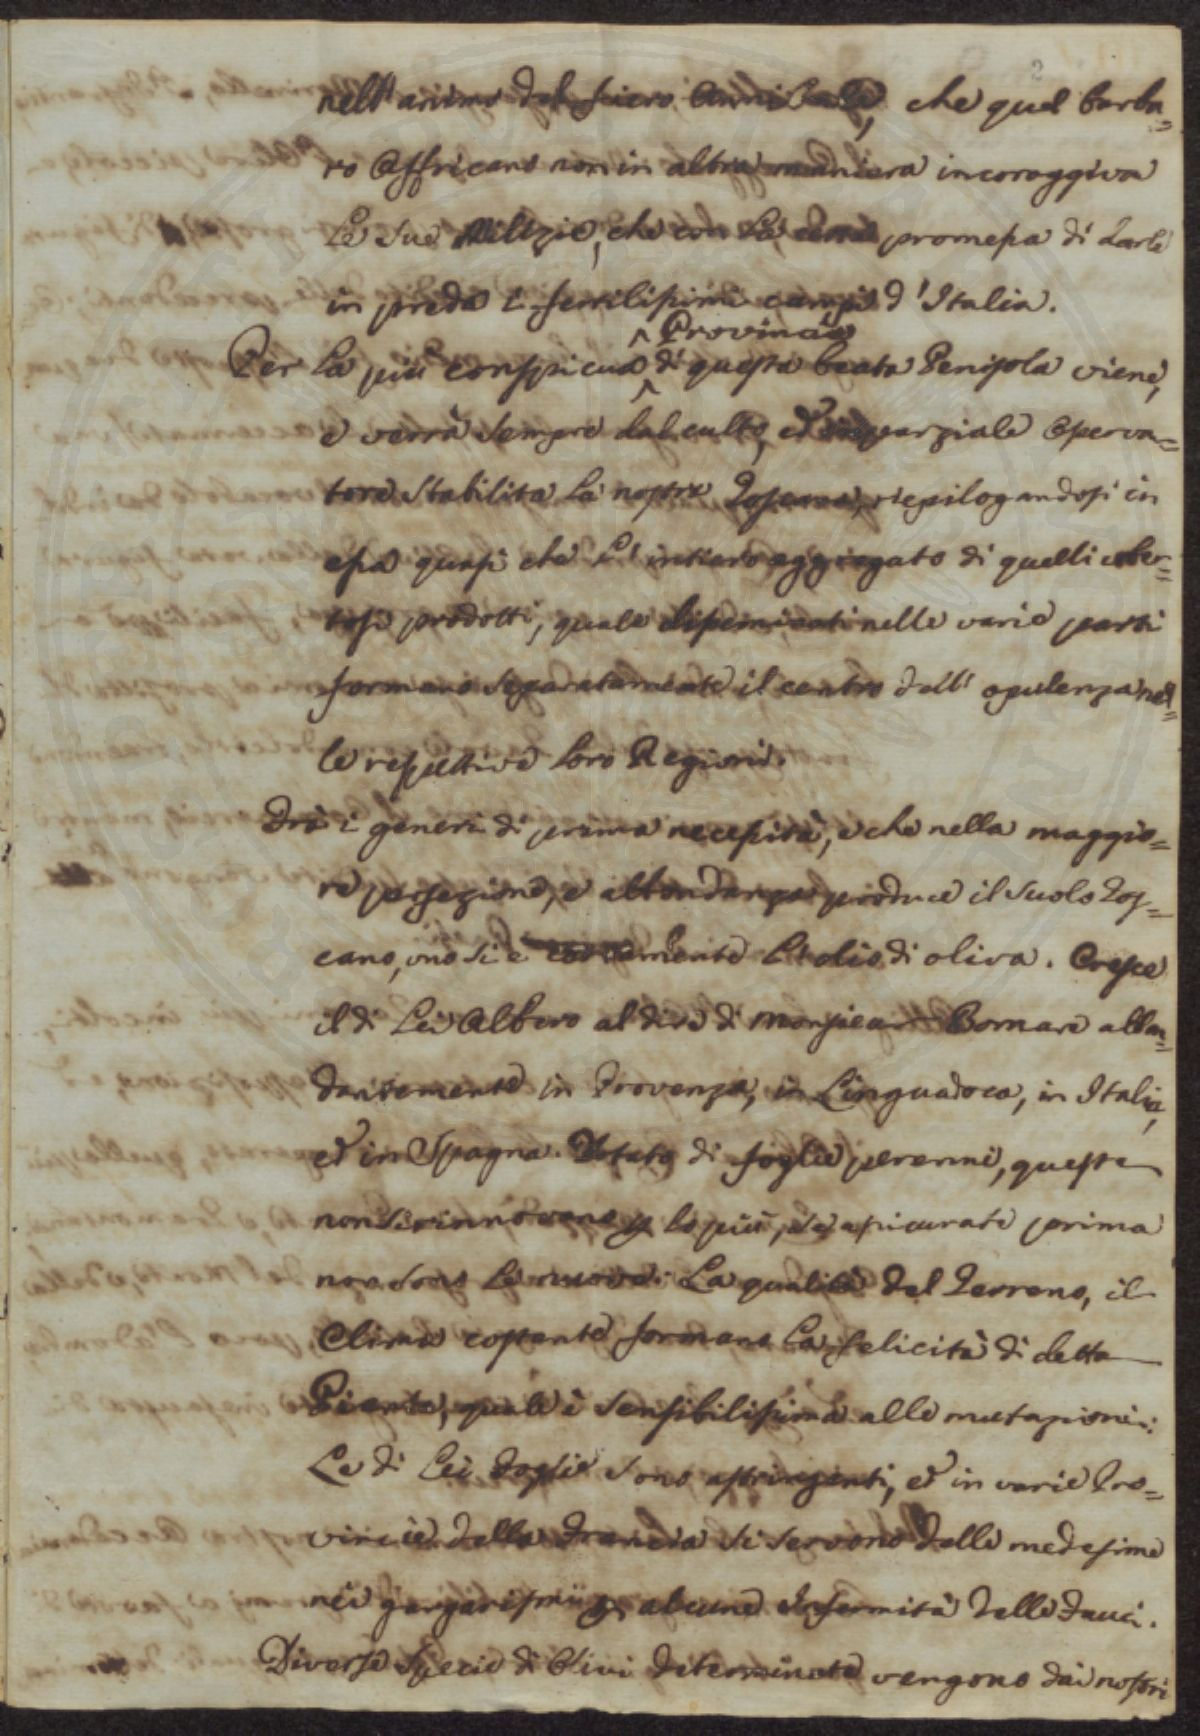 2
nell' animo del fiero Annibale, che quel barba=
ro Affricano non in altra maniera incoraggiva
Le sue Milizie, che con la promessa di darli
in preda i fertilissimi campi d' Italia.
Provincia
Per La più conspicua di questa beata Penisola viene,
e verrà sempre dal culto, ed imparziale Osserva=
tore stabilita la nostra Toscana, riepilogandosi in
essa quasi che L' intiero aggregato di quelli uber=
tosi prodotti, quale disseminati nelle varie parti
formano separatamente il centro dell' opulenza nel=
le respettive loro Regioni.
Frà i generi di prima necessità, e che nella maggio=
re perfezione, e abbondanza produce il suolo Tos=
cano, uno si è certamente L' olio di oliva. Cresce
il di Lei Albero al dire di Monsieur Bomare abbon=
dantemente in Provenza, in Linguadoca, in Italia,
ed in Spagna. Dotato di foglie perenni, queste
non si rinnovano p lo più, se assicurate prima
non sono Le nuove. La qualità del Terreno, il
Clima costante formano La felicità di detta
Pianta, quale è sensibilissima alle mutazioni:
Le di Lei foglie sono astringenti, ed in varie Pro=
vincie della Francia si servono delle medesime
nei gargarismi p alcune Infermità delle Fauci.
Diverse specie di Olivi determinate vengono dai nostri